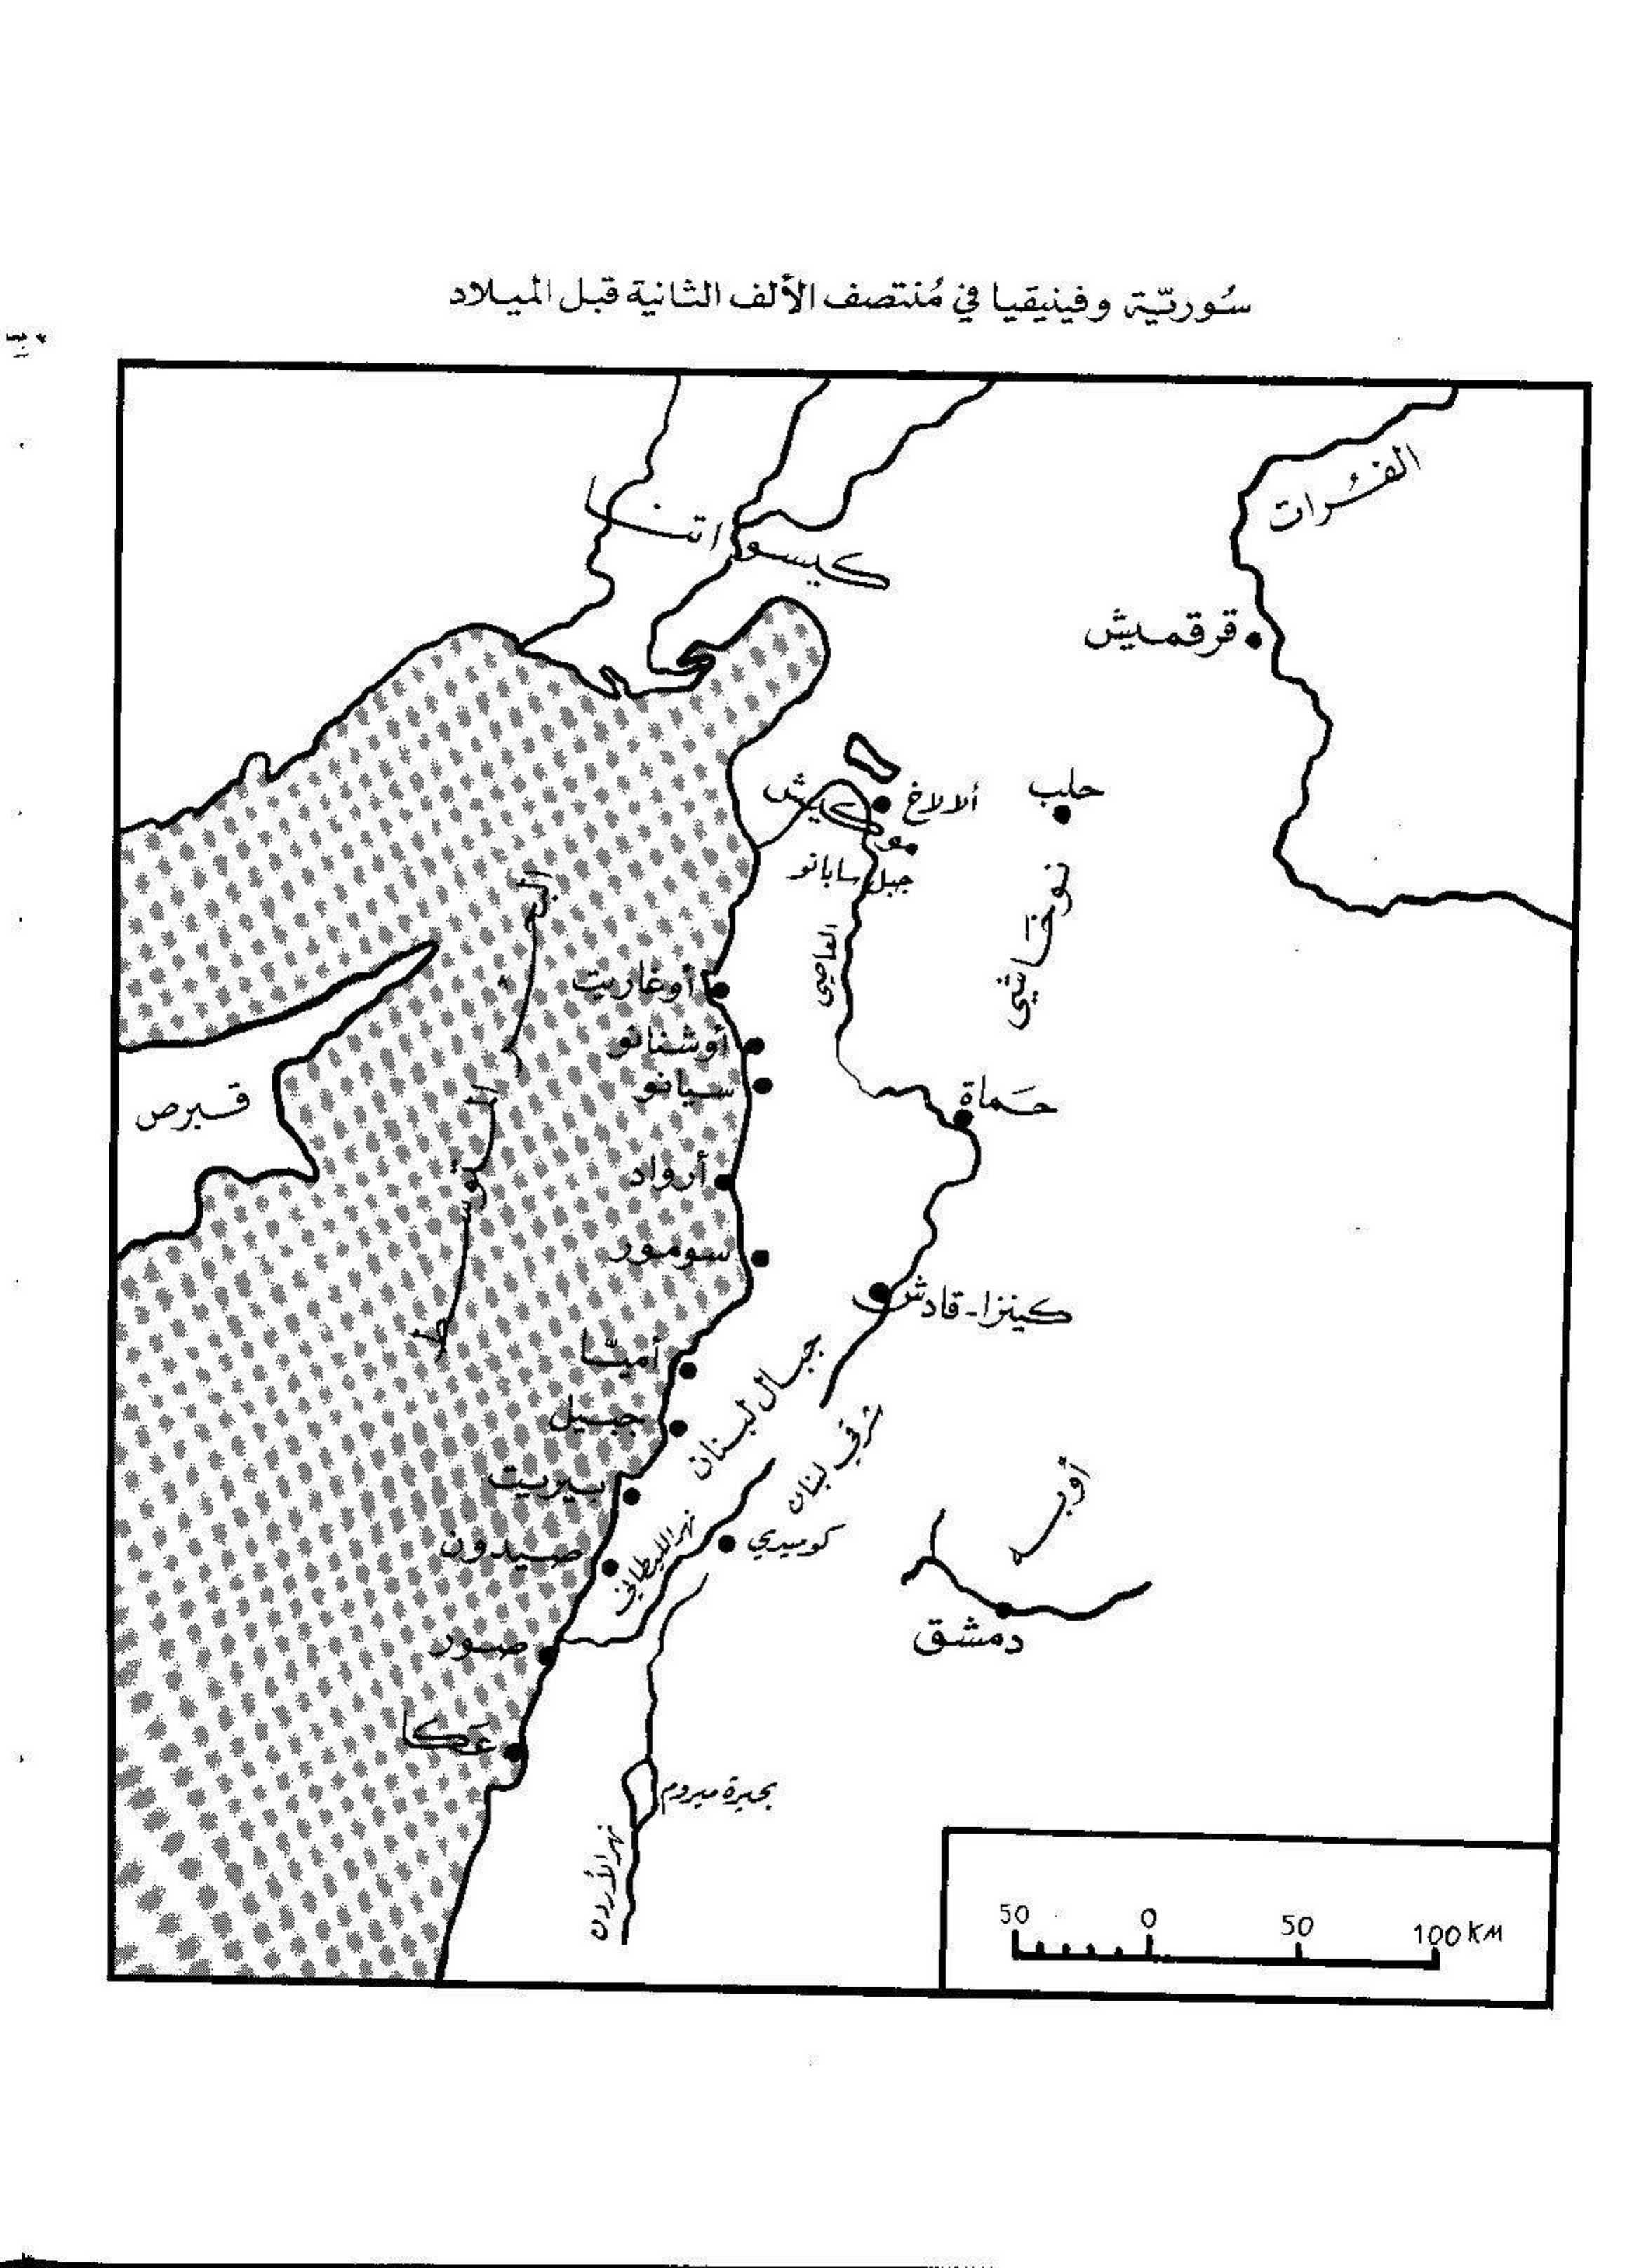 سُوريّة وفينيقيا في مُنتصف الألف الثانية قبل الميلاد
الفُرات
كيسواتنا
قرقميش
حلب
ألالاخ
موكيش
جبل سابانو
نوخاشي
العاصي
البحر
المتوسط
أوغاريت
أوشنانو
سيانو
قبرص
حماة
أرواد
سومور
كينزا-قادش
أميّا
جبال لبنان
شرقي لبنان
جبيل
بيريت
أوبه
نهر الليطاني
كوميدي
صيدون
دمشق
صور
عكا
بحيرة ميروم
نهر الأردن
50 0 50 100 KM